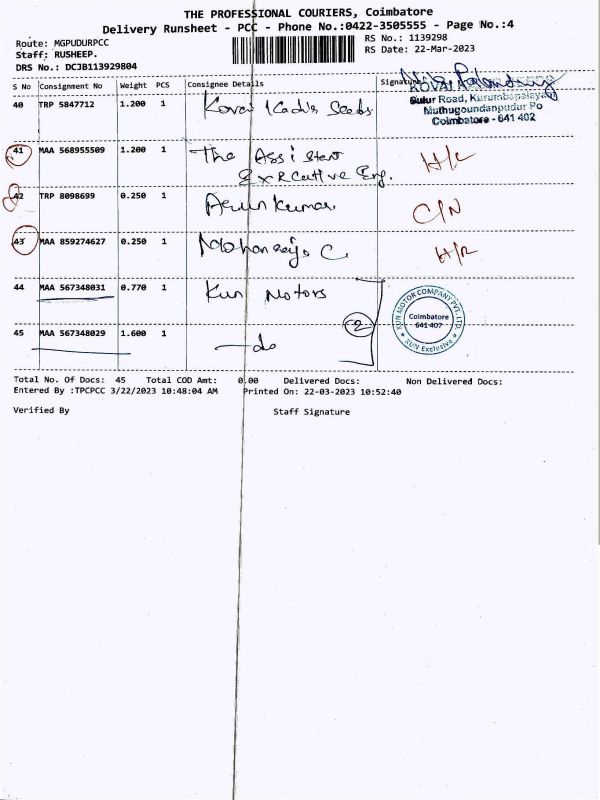 THE PROFESSIONAL COURIERS, Coimbatore
Delivery Runsheet - PCC - Phone No.:0422-3505555 - Page No.:4
Route: MGPUDURPCC
RS No.: 1139298
Staff: RUSHEEP.
RS Date: 22-Mar-2023
DRS No.: DCJB113929804
S No Consignment No Weight PCS Consignee Details Signature
KOVAI
Sulur Road, Kurumbapalayam
Muthugoundanpudur Po
Coimbatore - 641 402
40 TRP 5847712 1.200 1 Kovai Kadis Seeds
41 MAA 568955509 1.200 1 The Assistent
Executive Eng.
42 TRP 8098699 0.250 1 Arun Kumar C/N
43 MAA 859274627 0.250 1 C.
44 MAA 567348031 0.770 1 Kun Motors
2
KUN MOTOR COMPANY PVT. LTD.
Coimbatore
641 407
KUN Exclusive
45 MAA 567348029 1.600 1 —do
Total No. Of Docs: 45 Total COD Amt: 0.00 Delivered Docs: Non Delivered Docs:
Entered By :TPCPCC 3/22/2023 10:48:04 AM Printed On: 22-03-2023 10:52:40
Verified By Staff Signature